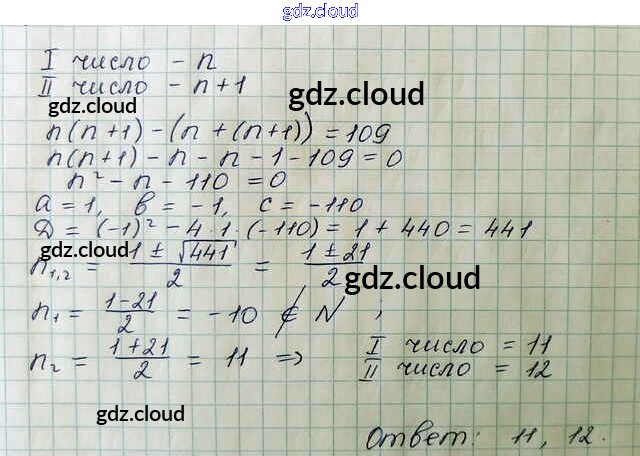 gdz.cloud
I число - n
II число - n+1
gdz.cloud
gdz.cloud
n(n+1) - (n + (n+1)) = 109
n(n+1) - n - n - 1 - 109 = 0
n² - n - 110 = 0
a = 1, b = -1, c = -110
D = (-1)² - 4·1·(-110) = 1 + 440 = 441
gdz.cloud
n₁,₂ = (1 ± √441)/2 = (1 ± 21)/2
gdz.cloud
n₁ = (1-21)/2 = -10 ∉ N ;
n₂ = (1+21)/2 = 11 => I число = 11
II число = 12
gdz.cloud
Ответ: 11, 12.